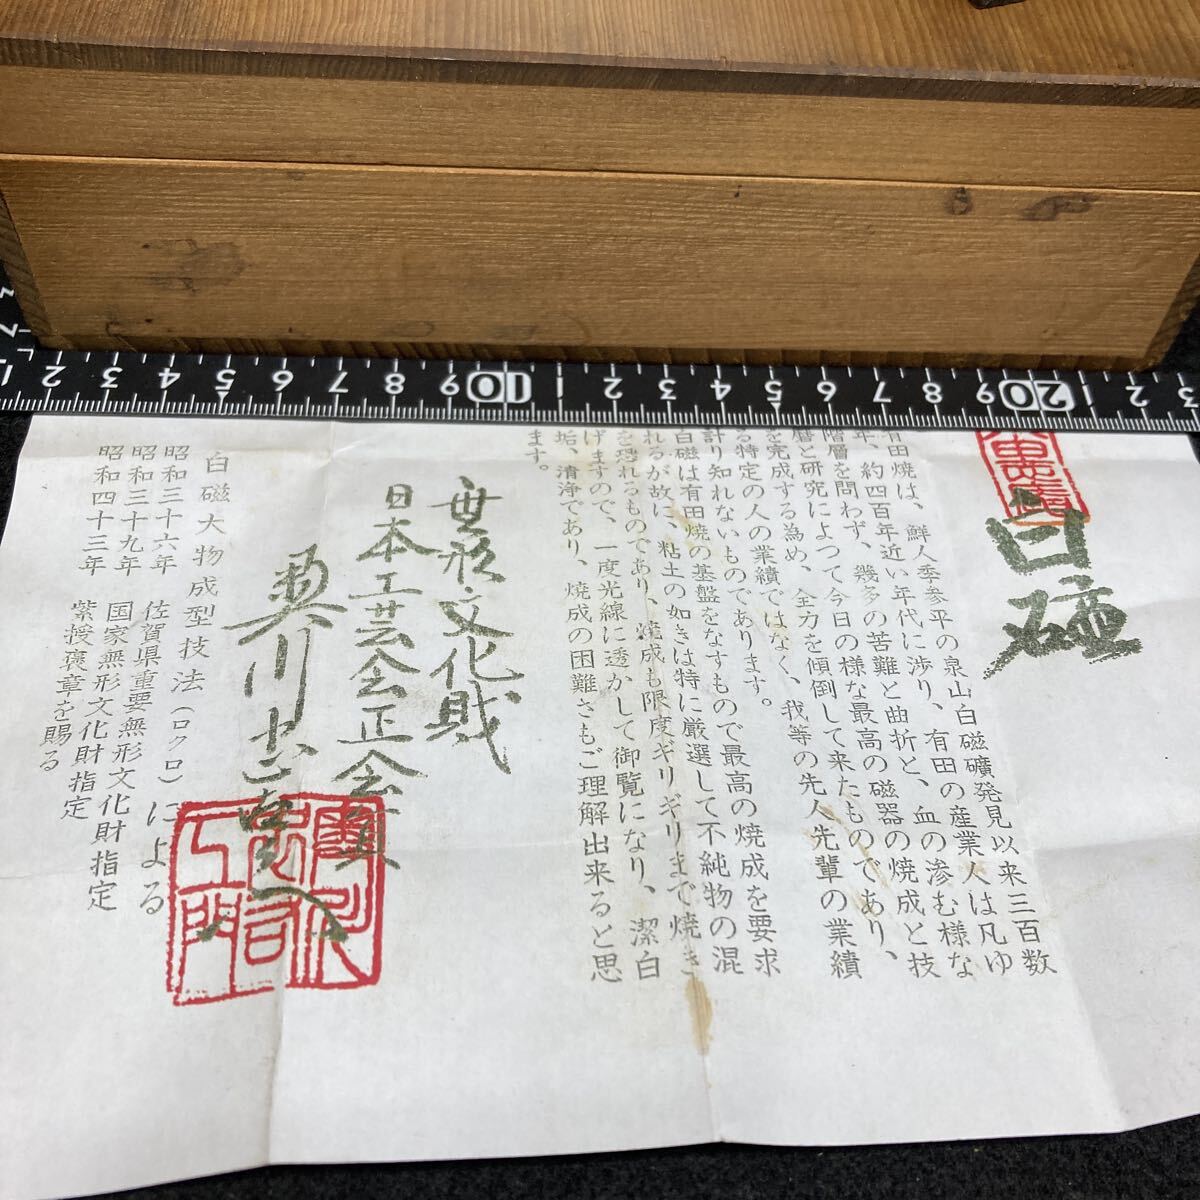 白磁
有田焼は、鮮人季参平の泉山白磁礦発見以来三百数
年、約四百年近い年代に渉り、有田の産業人は凡ゆ
階層を問わず、幾多の苦難と曲折と、血の滲む様な
磨と研究によつて今日の様な最高の磁器の焼成と技
を完成する為め、全力を傾倒して来たものであり、
る特定の人の業績ではなく、我等の先人先輩の業績
計り知れないものであります。
白磁は有田焼の基盤をなすもので最高の焼成を要求
れるが故に、粘土の如きは特に厳選して不純物の混
を恐れるものであり、焼成も限度ギリギリまで焼き
げますので、一度光線に透かして御覧になり、潔白
垢、清浄であり、焼成の困難さもご理解出来ると思
ます。
無形文化財
日本工芸会正会員
奥川忠右エ門
白磁大物成型技法(ロクロ)による
昭和三十六年 佐賀県重要無形文化財指定
昭和三十九年 国家無形文化財指定
昭和四十三年 紫授褒章を賜る
1 2 3 4 5 6 7 8 9 10 1 2 3 4 5 6 7 8 9 20 1 2 3